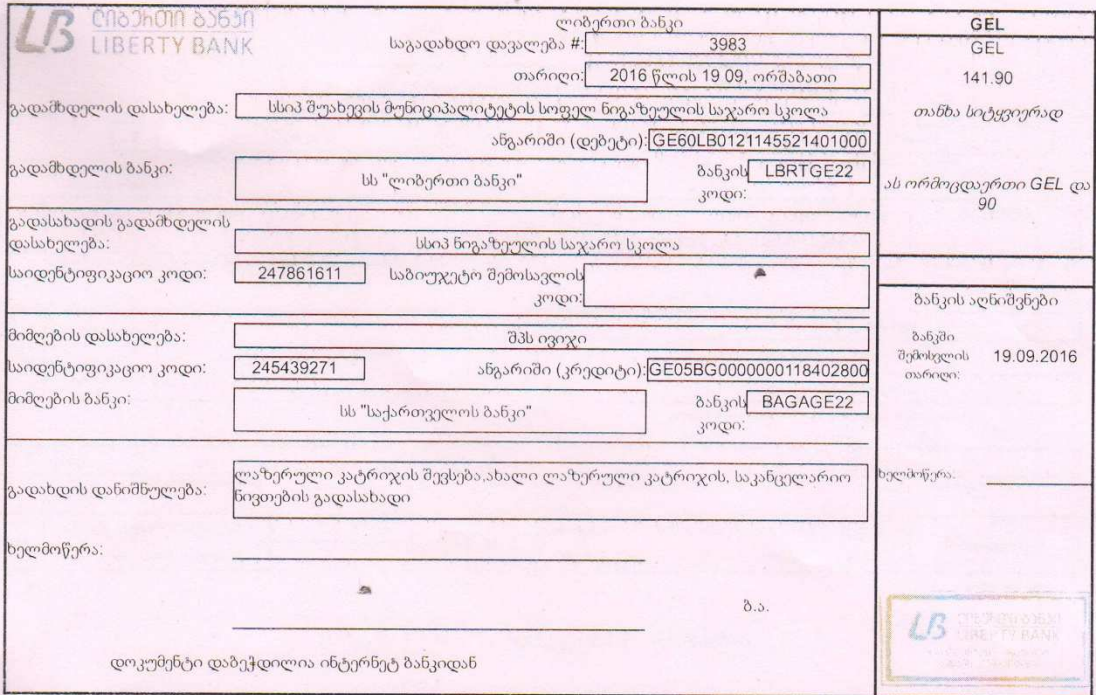 ლიბერთი ბანკი
LIBERTY BANK
ლიბერთი ბანკი
საგადახდო დავალება #: 3983
თარიღი: 2016 წლის 19 09, ორშაბათი
გადამხდელის დასახელება: სსიპ შუახევის მუნიციპალიტეტის სოფელ ნიგაზეულის საჯარო სკოლა
ანგარიში (დებეტი): GE60LB0121145521401000
გადამხდელის ბანკი: სს "ლიბერთი ბანკი" ბანკის კოდი: LBRTGE22
გადასახადის გადამხდელის
დასახელება: სსიპ ნიგაზეულის საჯარო სკოლა
საიდენტიფიკაციო კოდი: 247861611 საბიუჯეტო შემოსავლის
კოდი:
მიმღების დასახელება: შპს ივიჯი
საიდენტიფიკაციო კოდი: 245439271 ანგარიში (კრედიტი): GE05BG0000000118402800
მიმღების ბანკი: სს "საქართველოს ბანკი" ბანკის კოდი: BAGAGE22
გადახდის დანიშნულება: ლაზერული კატრიჯის შევსება,ახალი ლაზერული კატრიჯის, საკანცელარიო
ნივთების გადასახადი
ხელმოწერა:
ბ.ა.
დოკუმენტი დაბეჭდილია ინტერნეტ ბანკიდან
GEL
GEL
141.90
თანხა სიტყვიერად
ას ორმოცდაერთი GEL და
90
ბანკის აღნიშვნები
ბანკში
შემოსვლის 19.09.2016
თარიღი:
ხელმოწერა:
LIBERTY BANK